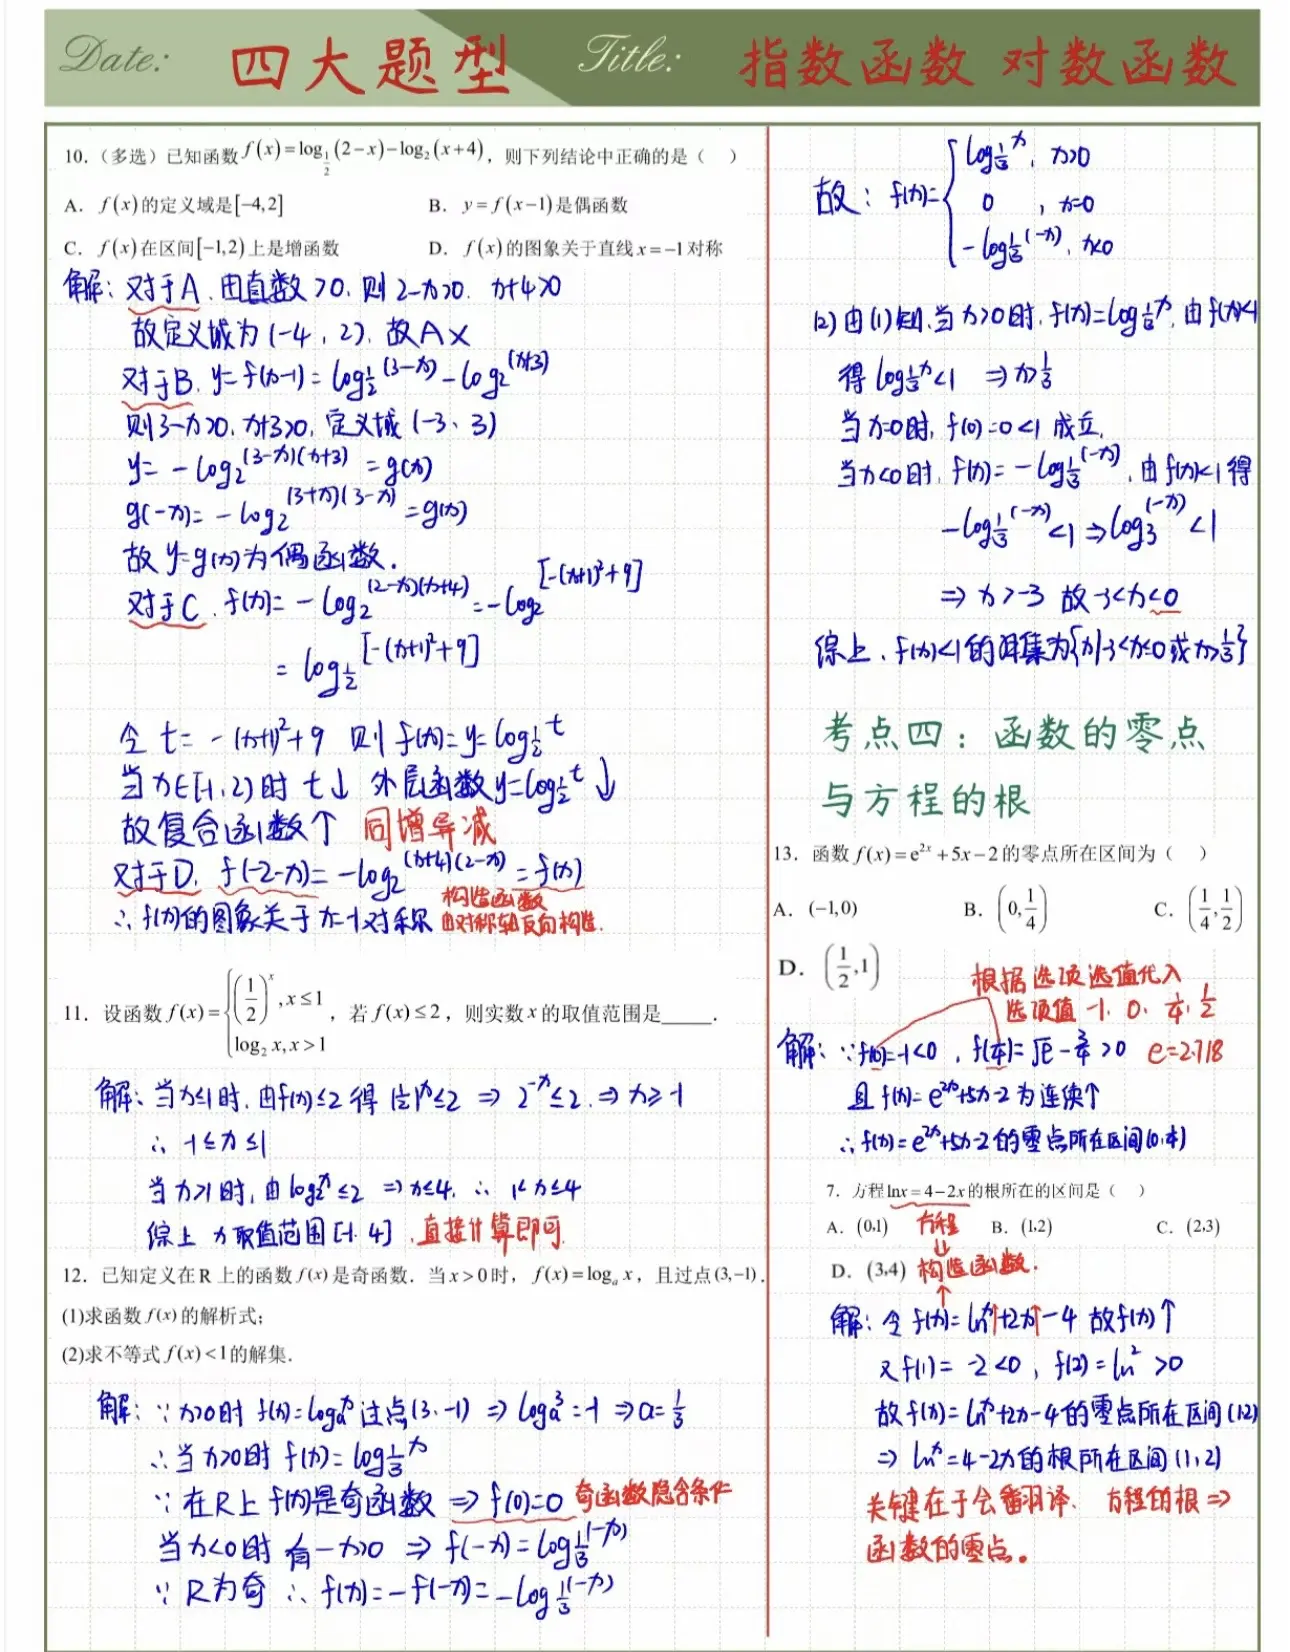 Date: 四大题型 Title: 指数函数 对数函数
10.（多选）已知函数 f(x)=log_{1/2}(2-x)-log₂(x+4)，则下列结论中正确的是（ ）
A. f(x)的定义域是[-4,2] B. y=f(x-1)是偶函数
C. f(x)在区间[-1,2)上是增函数 D. f(x)的图象关于直线x=-1对称
解：对于A、由真数>0. 则2-x>0. x+4>0
故定义域为(-4，2). 故A×
对于B. y=f(x-1)=log_{1/2}^{(3-x)}-log₂^{(x+3)}
则3-x>0. x+3>0, 定义域(-3、3)
y=-log₂^{(3-x)(x+3)}=g(x)
g(-x)=-log₂^{(3+x)(3-x)}=g(x)
故y=g(x)为偶函数.
对于C. f(x)=-log₂^{(2-x)(x+4)}=-log₂^{[-(x+1)²+9]}
=log_{1/2}^{[-(x+1)²+9]}
令t=-(x+1)²+9 则f(x)=y=log_{1/2}^t
当x∈[-1,2)时 t↓ 外层函数y=log_{1/2}^t↓
故复合函数↑ 同增异减
对于D. f(-2-x)=-log₂^{(x+4)(2-x)}=f(x)
构造函数
∴f(x)的图象关于x=-1对称 由对称轴反向构造.
11. 设函数f(x)={(1/2)^x, x≤1
log₂x, x>1 ，若f(x)≤2，则实数x的取值范围是____.
解：当x≤1时. 由f(x)≤2得(1/2)^x≤2 ⇒ 2^{-x}≤2. ⇒ x≥-1
∴ -1≤x≤1
当x>1时, 由log₂^x≤2 ⇒ x≤4. ∴ 1<x≤4
综上 x取值范围[-1. 4]. 直接计算即可
12. 已知定义在R上的函数f(x)是奇函数. 当x>0时，f(x)=logₐx，且过点(3,-1).
(1)求函数f(x)的解析式；
(2)求不等式f(x)<1的解集.
解：∵x>0时 f(x)=logₐ^x过点(3、-1) ⇒ logₐ³=-1 ⇒ a=1/3
∴当x>0时 f(x)=log_{1/3}^x
∵在R上f(x)是奇函数 ⇒ f(0)=0 奇函数隐含条件
当x<0时 有-x>0 ⇒ f(-x)=log_{1/3}^{(-x)}
∵R为奇 ∴f(x)=-f(-x)=-log_{1/3}^{(-x)}
故：f(x)={log_{1/3}^x, x>0
0 , x=0
-log_{1/3}^{(-x)}, x<0
(2)由(1)知、当x>0时. f(x)=log_{1/3}^x, 由f(x)<1
得log_{1/3}^x<1 ⇒x>1/3
当x=0时, f(0)=0<1 成立.
当x<0时, f(x)=-log_{1/3}^{(-x)}, 由f(x)<1得
-log_{1/3}^{(-x)}<1⇒log₃^{(-x)}<1
⇒ x>-3 故-3<x<0
综上、f(x)<1的解集为{x|-3<x≤0或x>1/3}
考点四：函数的零点
与方程的根
13. 函数f(x)=e^{2x}+5x-2的零点所在区间为（ ）
A. (-1,0) B. (0,1/4) C. (1/4,1/2)
D. (1/2,1)
根据选项选值代入
选项值 -1. 0. 1/4. 1/2
解：∵f(0)=-1<0，f(1/4)=√e-3/4>0 e=2.718
且f(x)=e^{2x}+5x-2为连续↑
∴f(x)=e^{2x}+5x-2的零点所在区间(0,1/4)
7. 方程lnx=4-2x的根所在的区间是（ ）
A. (0,1) 方程 B. (1,2) C. (2,3)
D. (3,4) 构造函数.
解：令f(x)=ln^x↑+2x↑-4 故f(x)↑
又f(1)=-2<0，f(2)=ln²>0
故f(x)=ln^x+2x-4的零点所在区间(1,2)
⇒ ln^x=4-2x的根所在区间(1,2)
关键在于会翻译. 方程的根⇒
函数的零点。